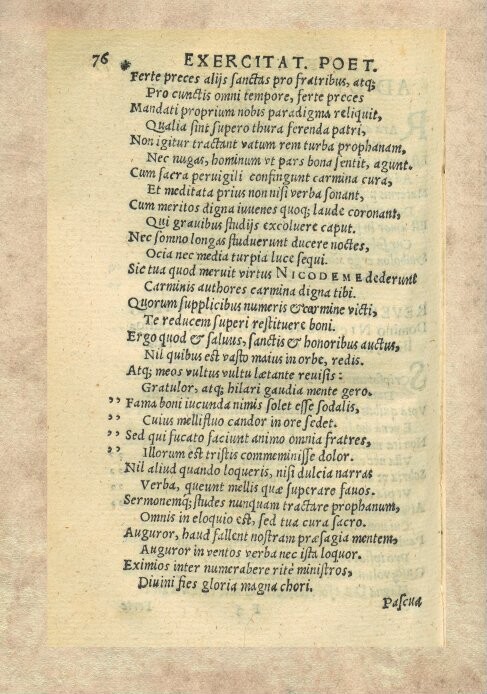 76 EXERCITAT. POET.
Ferte preces alijs sanctas pro fratribus, atq;
Pro cunctis omni tempore, ferte preces
Mandati proprium nobis paradigma reliquit,
Qualia sint supero thura ferenda patri,
Non igitur tractant vatum rem turba prophanam,
Nec nugas, hominum vt pars bona sentit, agunt.
Cum sacra peruigili confingunt carmina cura,
Et meditata prius non nisi verba sonant,
Cum meritos digna iuuenes quoq; laude coronant,
Qui grauibus studijs excoluere caput.
Nec somno longas studuerunt ducere noctes,
Ocia nec media turpia luce sequi.
Sic tua quod meruit virtus NICODEME dederunt
Carminis authores carmina digna tibi.
Quorum supplicibus numeris & carmine victi,
Te reducem superi restituere boni.
Ergo quod & saluus, sanctis & honoribus auctus,
Nil quibus est vasto maius in orbe, redis.
Atq; meos vultus vultu lætante reuisis:
Gratulor, atq; hilari gaudia mente gero.
” Fama boni iucunda nimis solet esse sodalis,
” Cuius mellifluo candor in ore sedet.
” Sed qui fucato faciunt animo omnia fratres,
” Illorum est tristis commeminisse dolor.
Nil aliud quando loqueris, nisi dulcia narras
Verba, queunt mellis quæ superare fauos.
Sermonemq; studes nunquam tractare prophanum,
Omnis in eloquio est, sed tua cura sacro.
Auguror, haud fallent nostram præsagia mentem,
Auguror in ventos verba nec ista loquor.
Eximios inter numerabere ritè ministros,
Diuini fies gloria magna chori.
Pascua